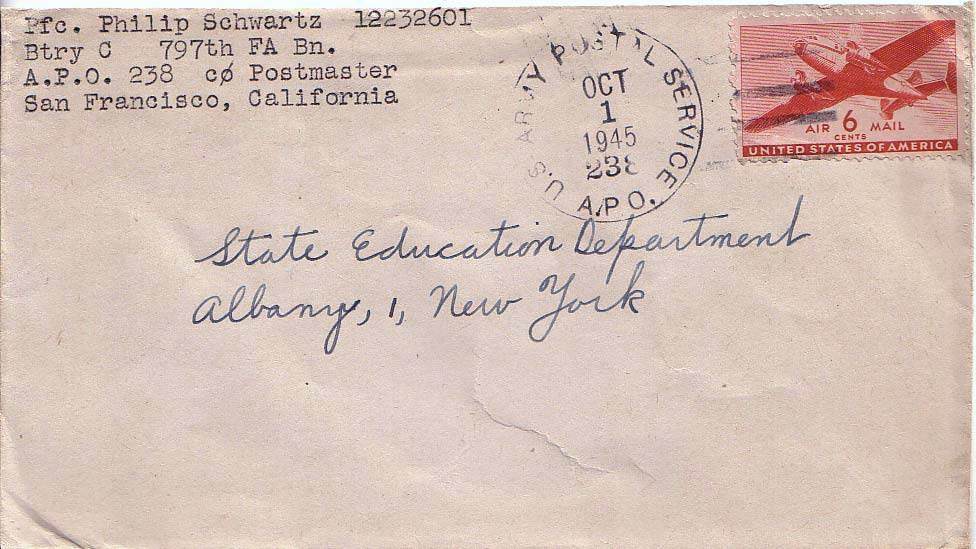 Pfc. Philip Schwartz 12232601
Btry C 797th FA Bn.
A.P.O. 238 cø Postmaster
San Francisco, California
U.S. ARMY POSTAL SERVICE
OCT
1
1945
238
A.P.O.
AIR 6 MAIL
CENTS
UNITED STATES OF AMERICA
State Education Department
Albany, 1, New York